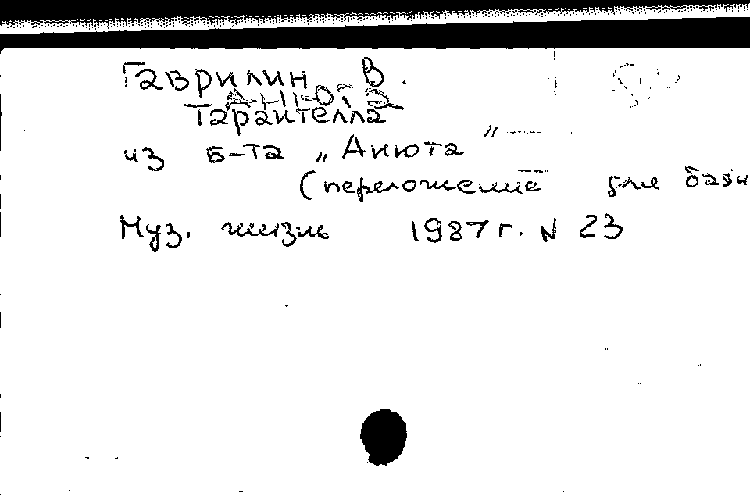 Гаврилин В.
Анюта
Тарантелла
из б-та „Анюта"
(переложение для баян
Муз. жизнь 1987 г. N 23